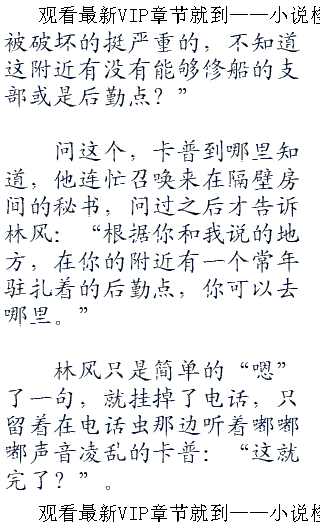 观看最新VIP章节就到——小说
被破坏的挺严重的，不知道
这附近有没有能够修船的支
部或是后勤点？”
问这个，卡普到哪里知
道，他连忙召唤来在隔壁房
间的秘书，问过之后才告诉
林风：“根据你和我说的地
方，在你的附近有一个常年
驻扎着的后勤点，你可以去
哪里。”
林风只是简单的“嗯”
了一句，就挂掉了电话，只
留着在电话虫那边听着嘟嘟
嘟声音凌乱的卡普：“这就
完了？”。
观看最新VIP章节就到——小说